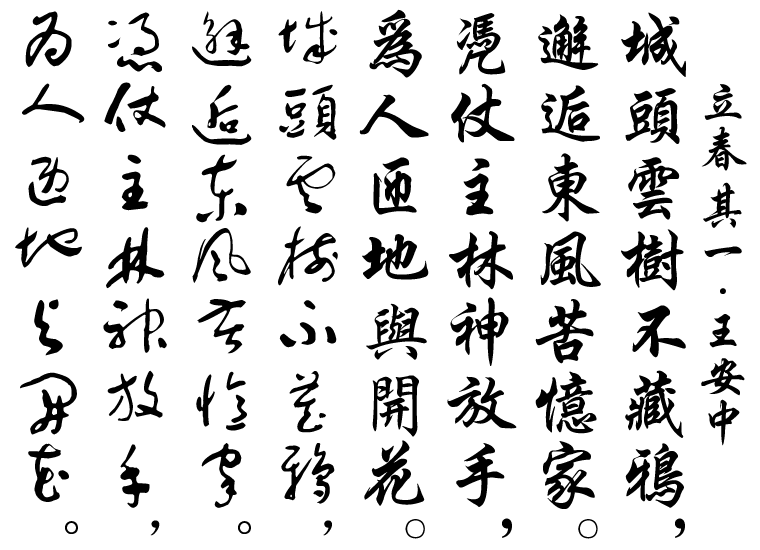 立春其一·王安中
城頭雲樹不藏鴉，
邂逅東風苦憶家。
憑仗主林神放手，
為人匝地與開花。
城頭雲樹不藏鴉，
邂逅東風苦憶家。
憑仗主林神放手，
為人匝地與開花。